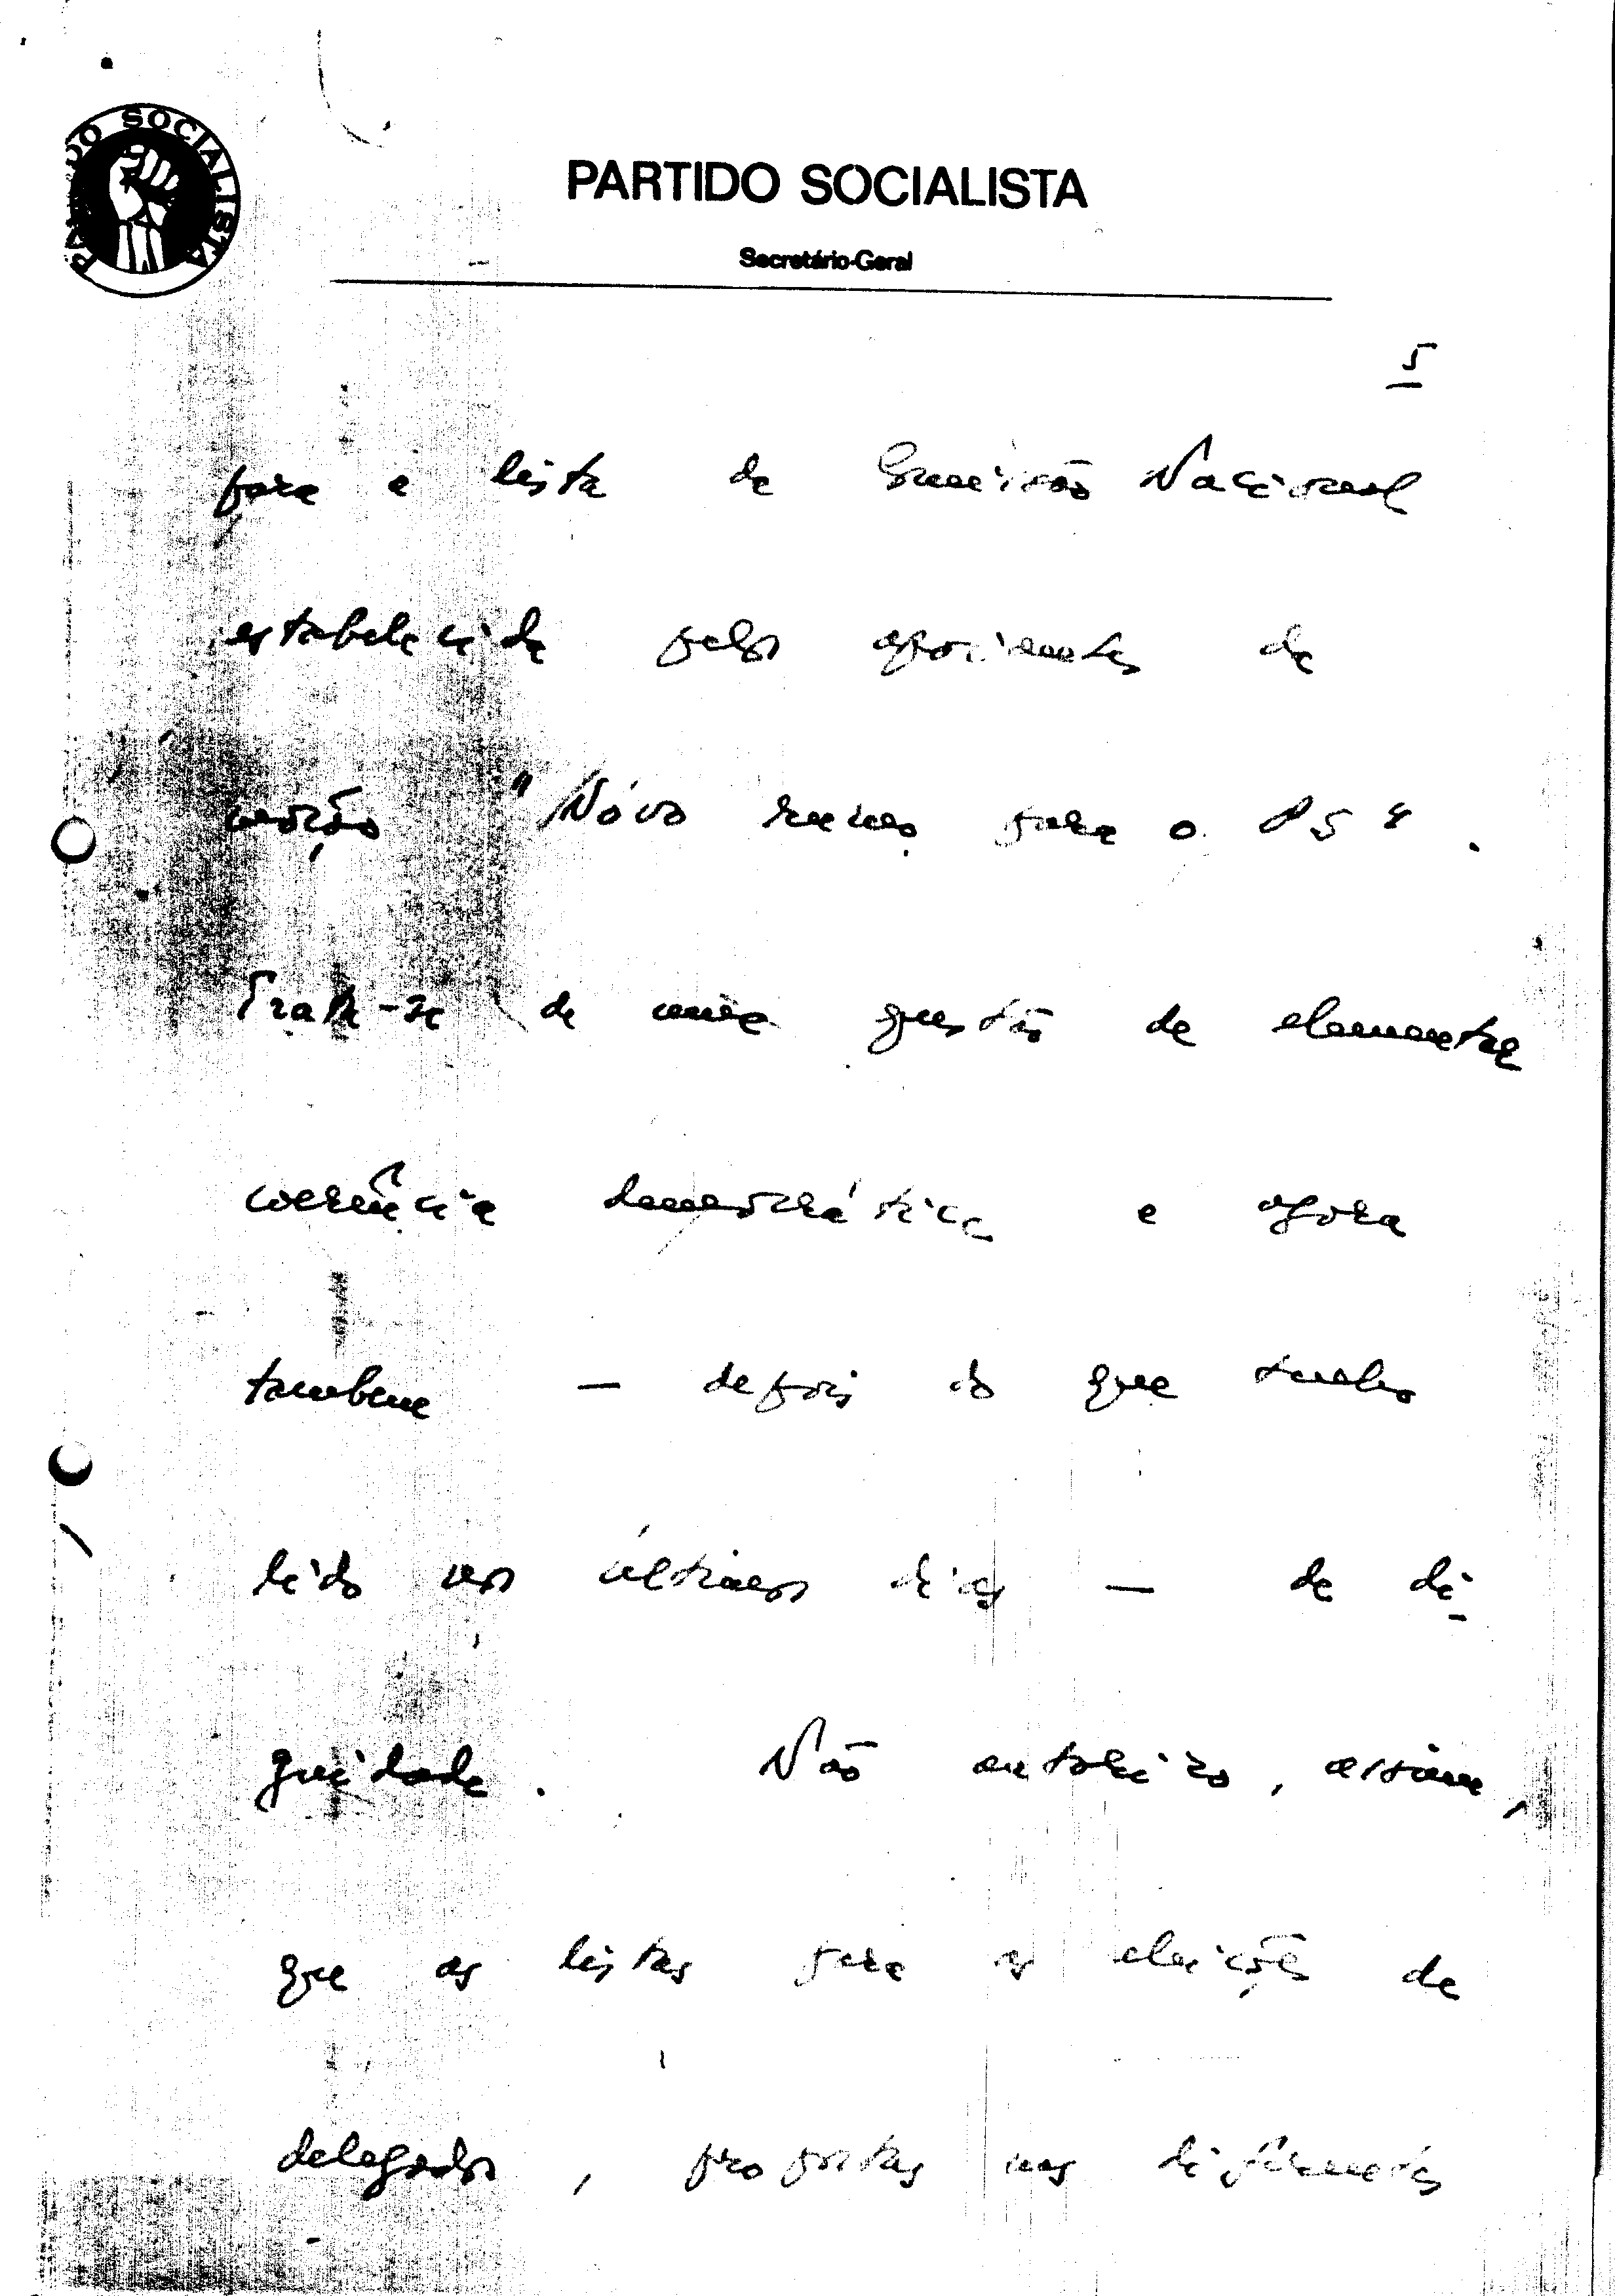 PARTIDO SOCIALISTA
PARTIDO SOCIALISTA
Secretário-Geral
5
para a lista da Comissão Nacional
estabelecida pelos apoiantes da
moção "Novo rumo para o PS".
Trata-se de uma questão de elementar
coerência democrática e agora
também — depois do que tenho
lido nos últimos dias — de di-
gnidade. Não autorizo, assim,
que as listas para as eleições de
delegados, propostas nas diferentes